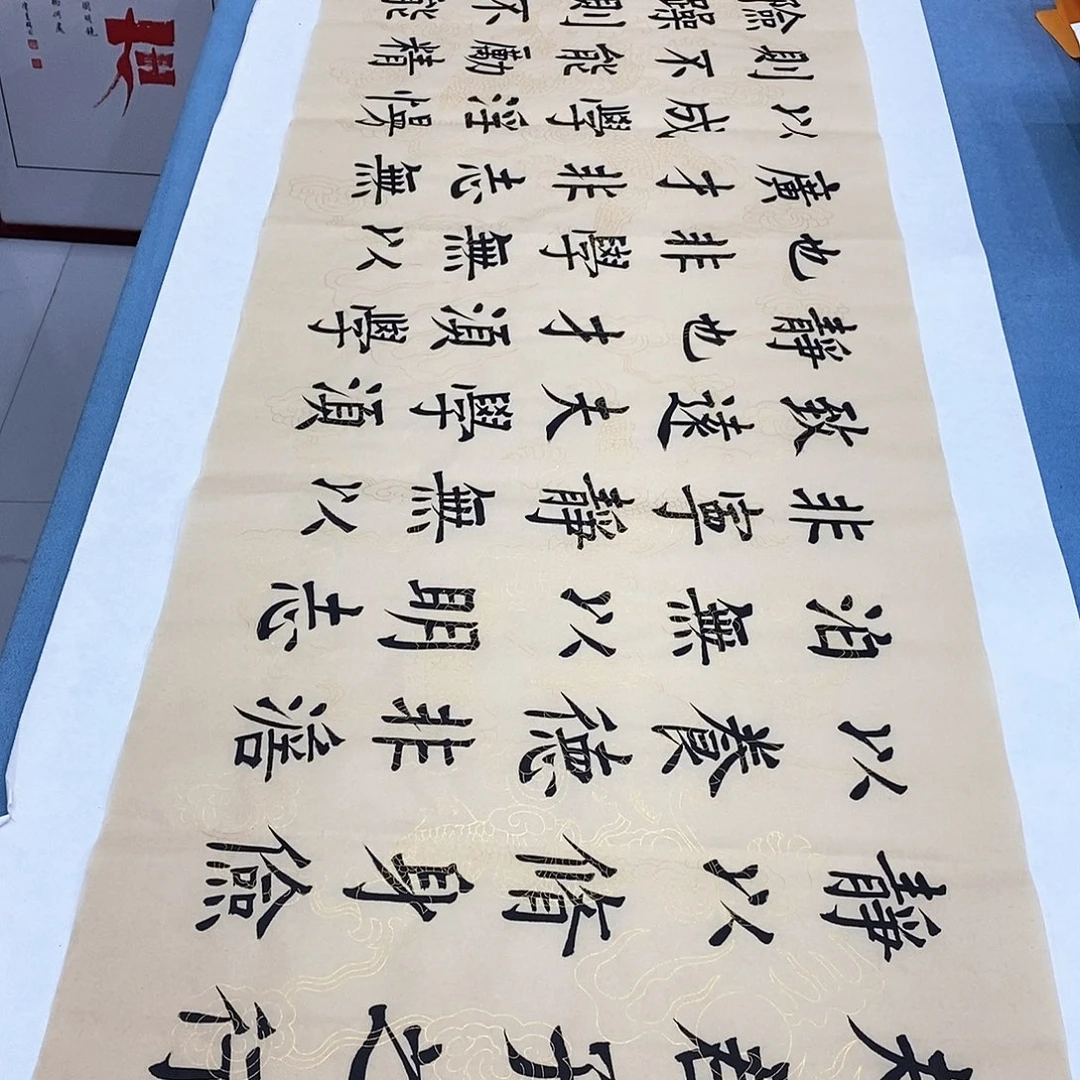 夫君子之行
靜以脩身儉
以養德非澹
泊無以明志
非寧靜無以
致遠夫學須
靜也才須學
也非學無以
廣才非志無
以成學淫慢
則不能勵精
險躁則不能